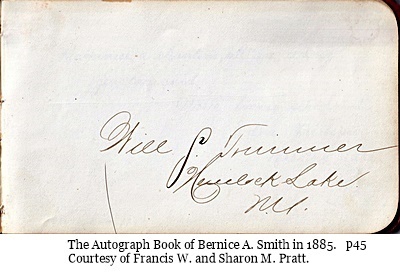 Will S. Trimmer
Hemlock Lake.
N.Y.
The Autograph Book of Bernice A. Smith in 1885. p45
Courtesy of Francis W. and Sharon M. Pratt.